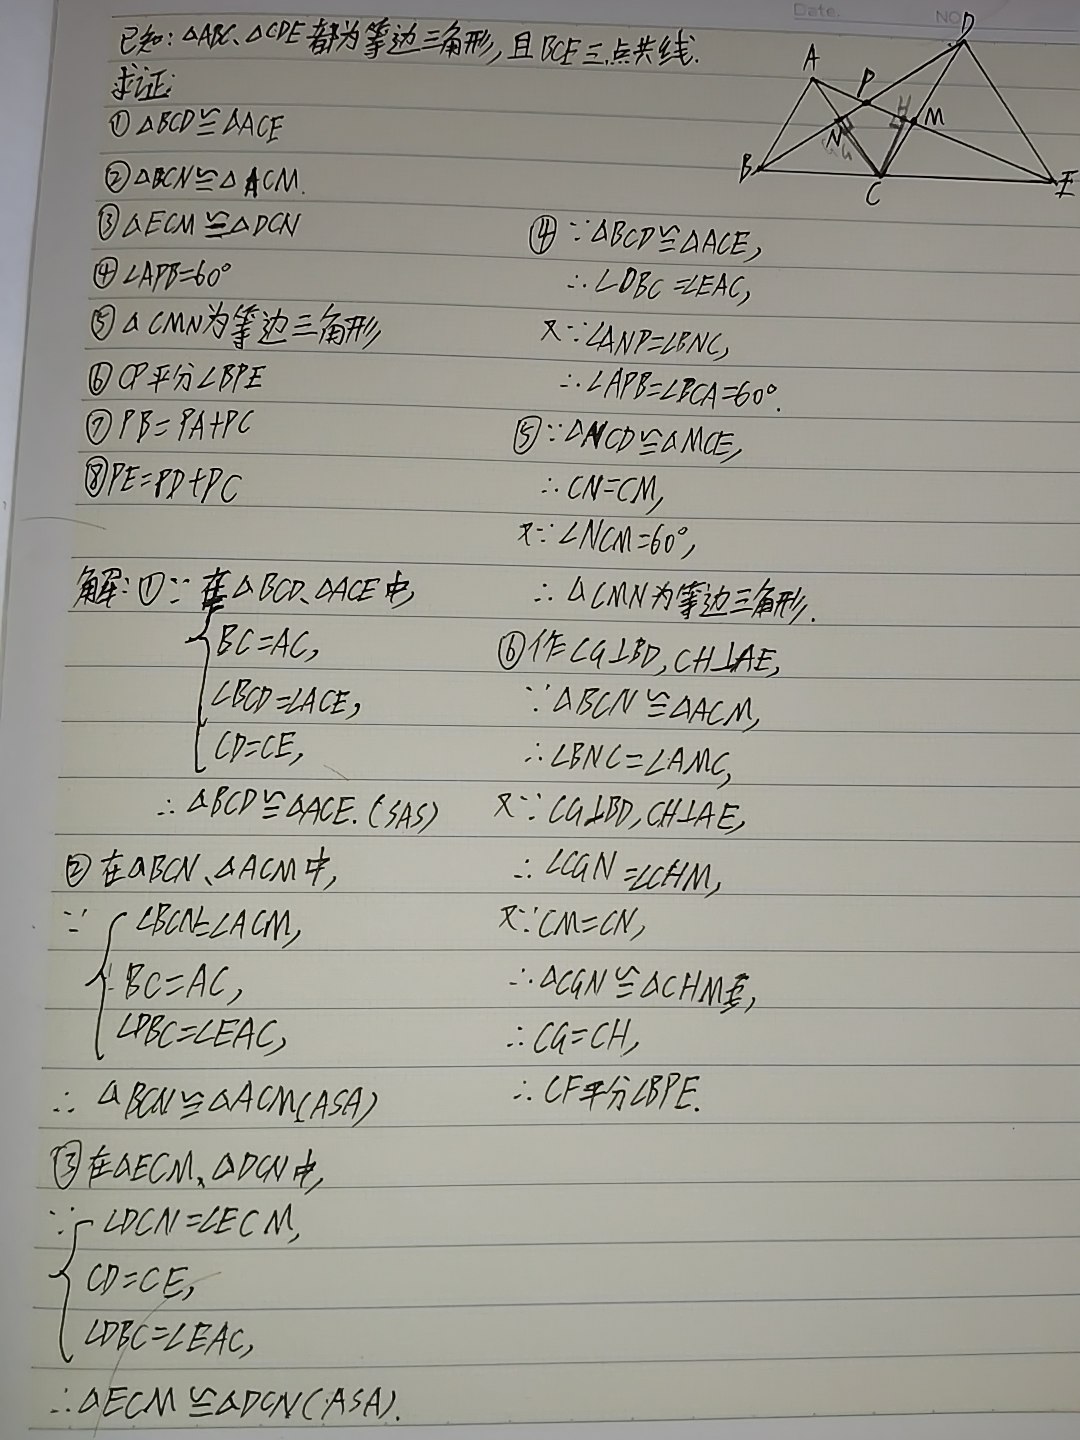 Date.
NO
已知:△ABC、△CDE都为等边三角形,且BCE三点共线.
求证:
①△BCD≌△ACE
②△BCN≌△ACM.
③△ECM≌△DCN
④∠APB=60°
⑤△CMN为等边三角形,
⑥CP平分∠BPE
⑦PB=PA+PC
⑧PE=PD+PC
解:①∵在△BCD、△ACE中,
BC=AC,
∠BCD=∠ACE,
CD=CE,
∴△BCD≌△ACE.(SAS)
②在△BCN、△ACM中,
∵∠BCN=∠ACM,
BC=AC,
∠DBC=∠EAC,
∴△BCN≌△ACM(ASA)
③在△ECM、△DCN中,
∵∠DCN=∠ECM,
CD=CE,
∠DBC=∠EAC,
∴△ECM≌△DCN(ASA).
④∵△BCD≌△ACE,
∴∠DBC=∠EAC,
又∵∠ANP=∠BNC,
∴∠APB=∠BCA=60°.
⑤∵△NCD≌△MCE,
∴CN=CM,
又∵∠NCM=60°,
∴△CMN为等边三角形.
⑥作CG⊥BD,CH⊥AE,
∵△BCN≌△ACM,
∴∠BNC=∠AMC,
又∵CG⊥BD,CH⊥AE,
∴∠CGN=∠CHM,
又∵CM=CN,
∴△CGN≌△CHM,
∴CG=CH,
∴CF平分∠BPE.
A
P
D
N
G
H
M
B
C
E